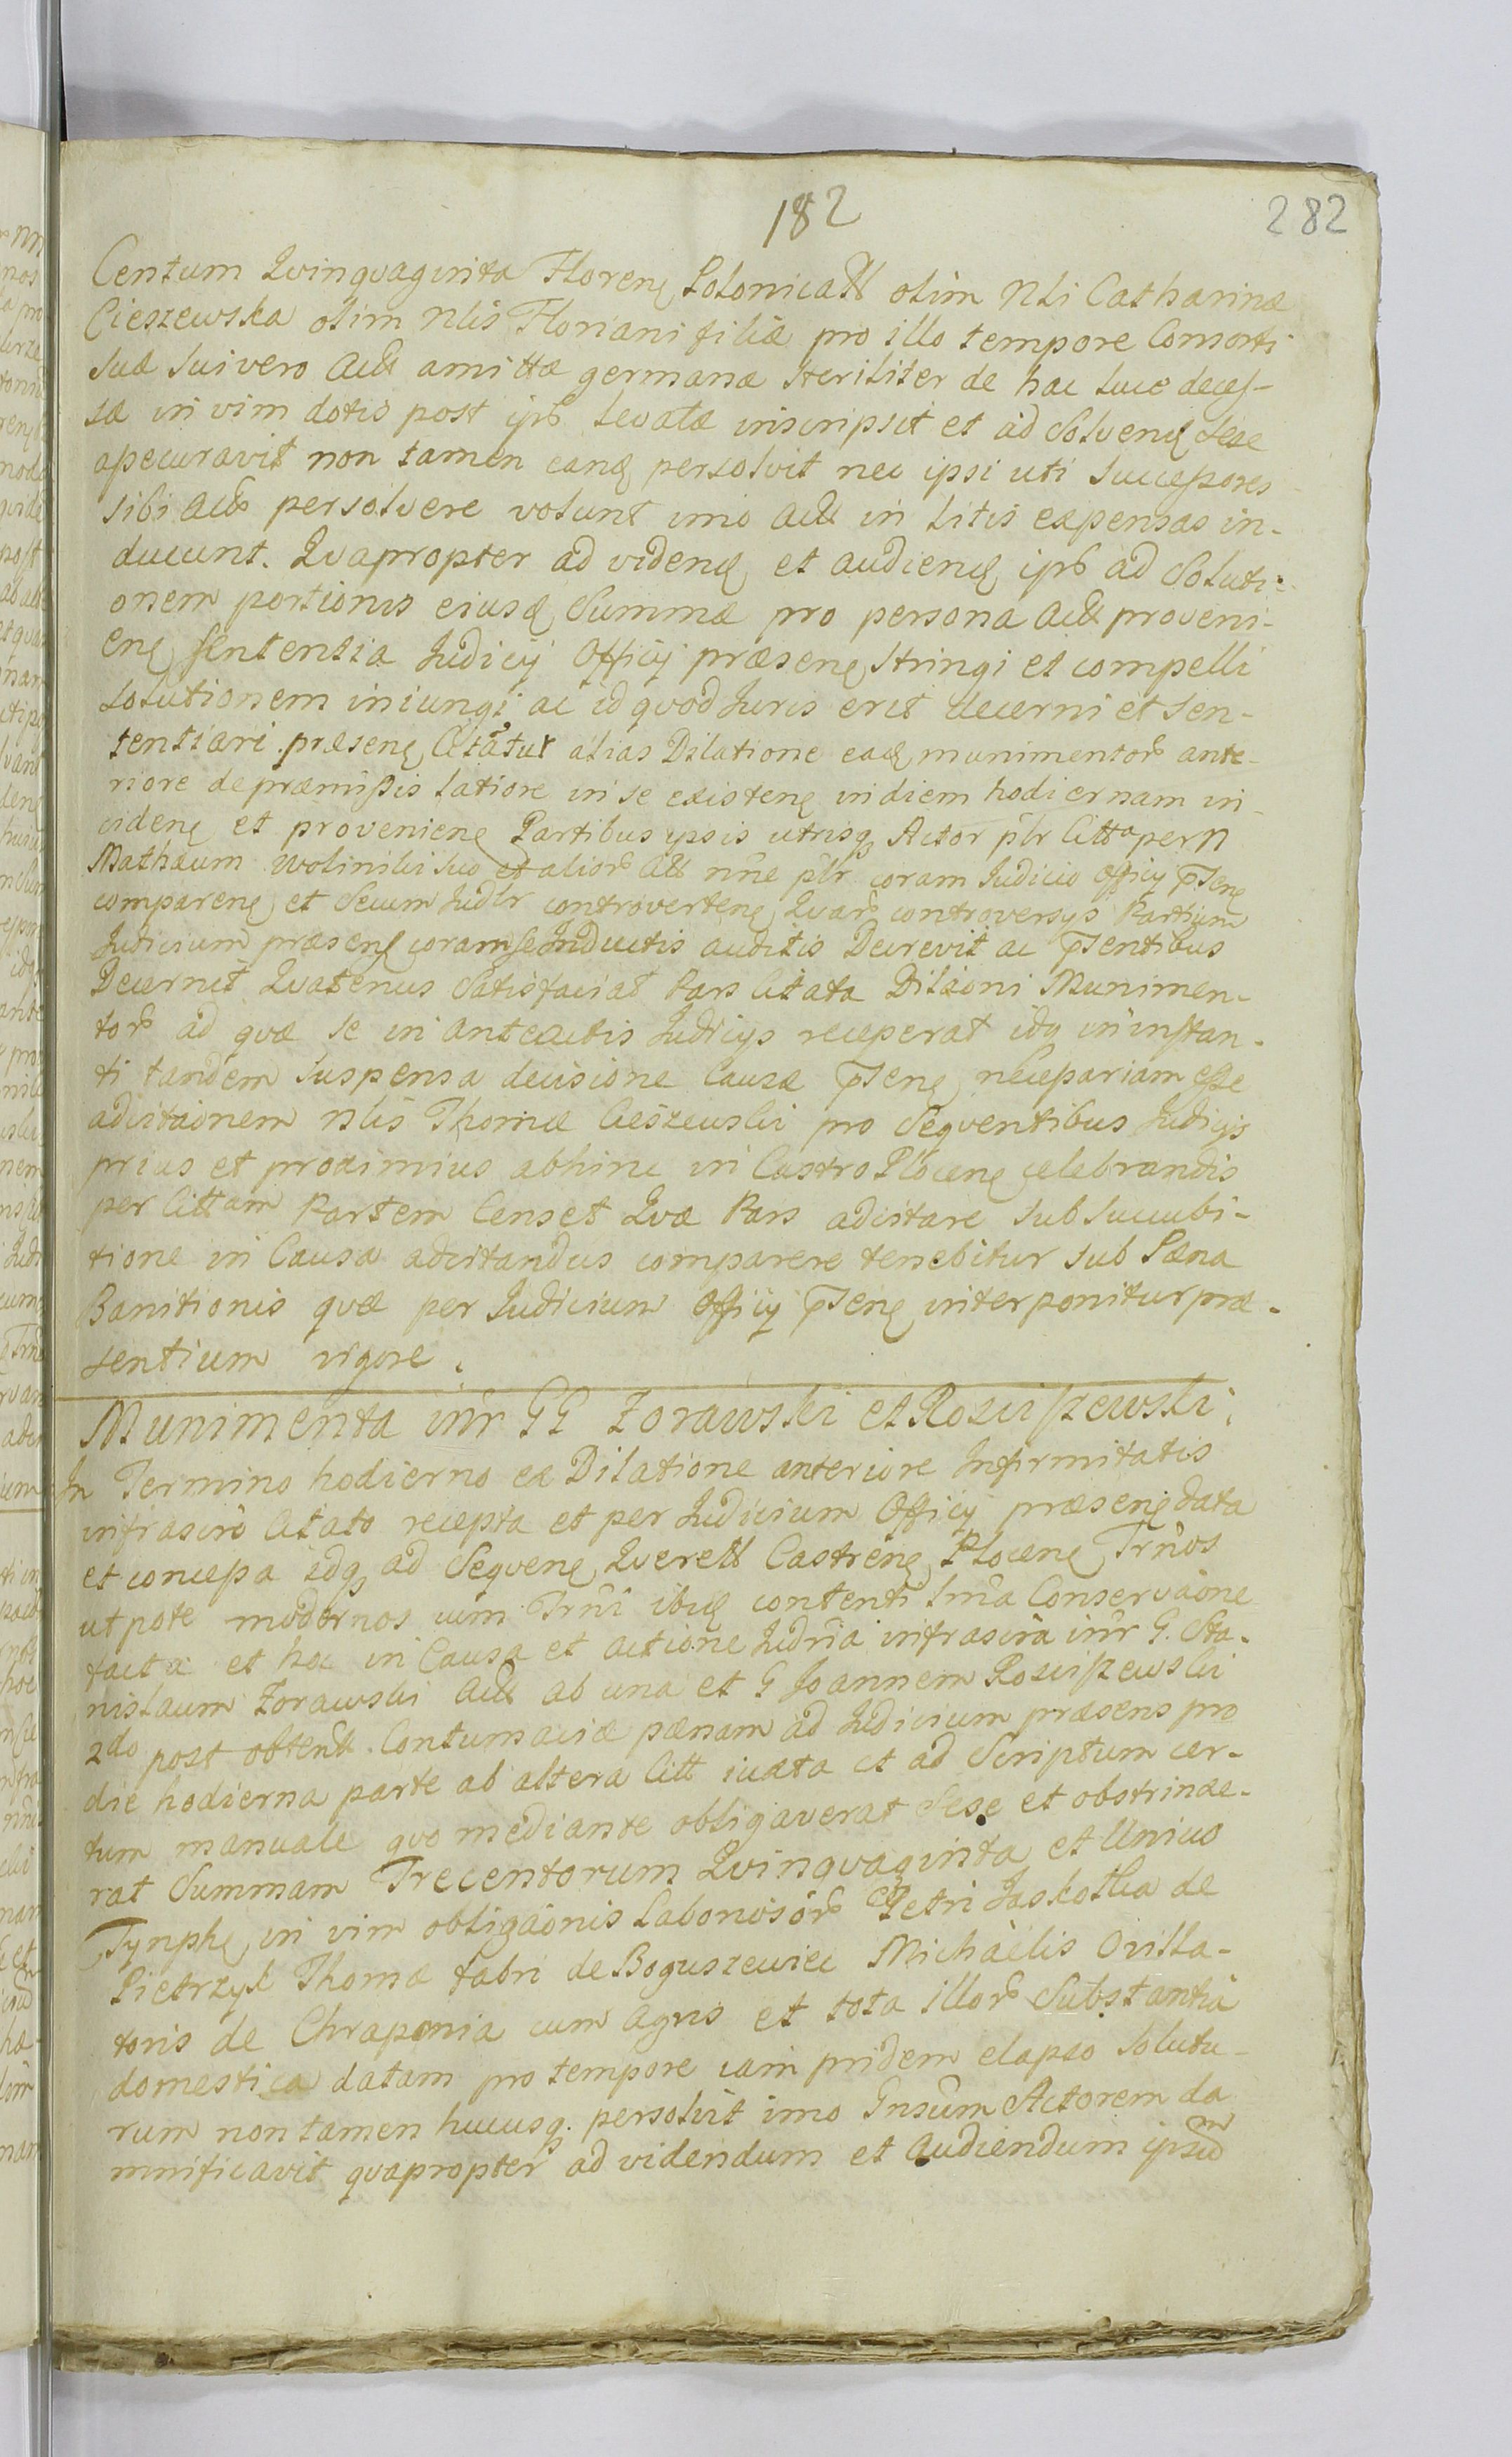 182
282
Centum Qvinqvaginta Floreng Polonicall olim Nli Catharinæ
Cieszewska olim Nlis Floriani filiæ pro illo tempore Consorti
suæ sui vero Act amittæ germanæ steriliter de hac luce deces-
sæ in vim dotis post ips levatæ inscripsit et ad Solvend sese
assecuravit non tamen eand persolvit nec ipsi uti Successores
sibi Act persolvere volunt imo Act in Litis expensas in-
ducunt. Qvapropter ad vidend et audiend ips ad Soluti-
onem portionis eiusd Summæ pro persona Act proveni-
eng sententia Judicij Officij præseng stringi et compelli
solutionem iniungi ac id qvod Juris erit decerni et sen-
tentiari præseng Citatur alias Dilatione ead munimentor ante-
riore de præmissis latiore in se existeng in diem hodiernam in-
cideng et provenieng Partibus ipsis utrisq Actor plr Citta per N
Mathæum Wolinski suo et alior Act nne plr coram Judicio Officij pseng
compareng et Secum Judlr controverteng Qvar controversys Partium
Judicium præseng coram se Inductis auditis Decrevit ac psentibus
Decernit Qvatenus Satisfaciat Pars Citata Dilaoni Munimen-
tor ad qvæ se in anteactis Judicijs receperat idq in instan-
ti tandem Suspensa decisione Causæ pseng necessariam esse
adcitaonem Nlis Thomæ Cieszewski pro Seqventibus Judicijs
prius et proximius abhinc in Castro Ploceng celebrandis
per Cittam Partem Censet Qvæ Pars adcitare sub Succubi-
tione in Causa adcitandus comparere tenebitur sub Pæna
Banitionis qvæ per Judicium Officij pseng interponitur præ-
sentium vigore.
Munimenta inr GG Zorawski et Rosciszewski.
In Termino hodierno ex Dilatione anteriore Infirmitatis
infrascro Citato recepta et per Judicium Officij præseng data
et concessa idq ad Seqveng Qverell Castreng Ploceng Trnos
utpote modernos cum Trni ibid contenti lma Conservaone
facta et hoc in Causa et actione Judria infrascra inr G. Sta-
nislaum Zorawski Act ab una et G Joannem Rosciszewski
2do post obtent. Contumaciæ pænam ad Judicium præsens pro
die hodierna parte ab altera Citt iuxta et ad Scriptum cer-
tum manuale qvo mediante obligaverat sese et obstrinxe-
rat Summam Trecentorum Qvinqvaginta et Unius
Tymph in vim obligaonis Laboriosor Petri Jaskotka de
Pietrzyk Thomæ fabri de Boguszewiec Michaëlis Ovilla-
toris de Chraponia cum Agris et tota illor Substantia
domestica datam pro tempore iam pridem elapso Solutu-
rum non tamen hucusq. persolvit imo Gnsum Actorem da
mnificavit qvapropter ad videndum et Audiendum ipsum